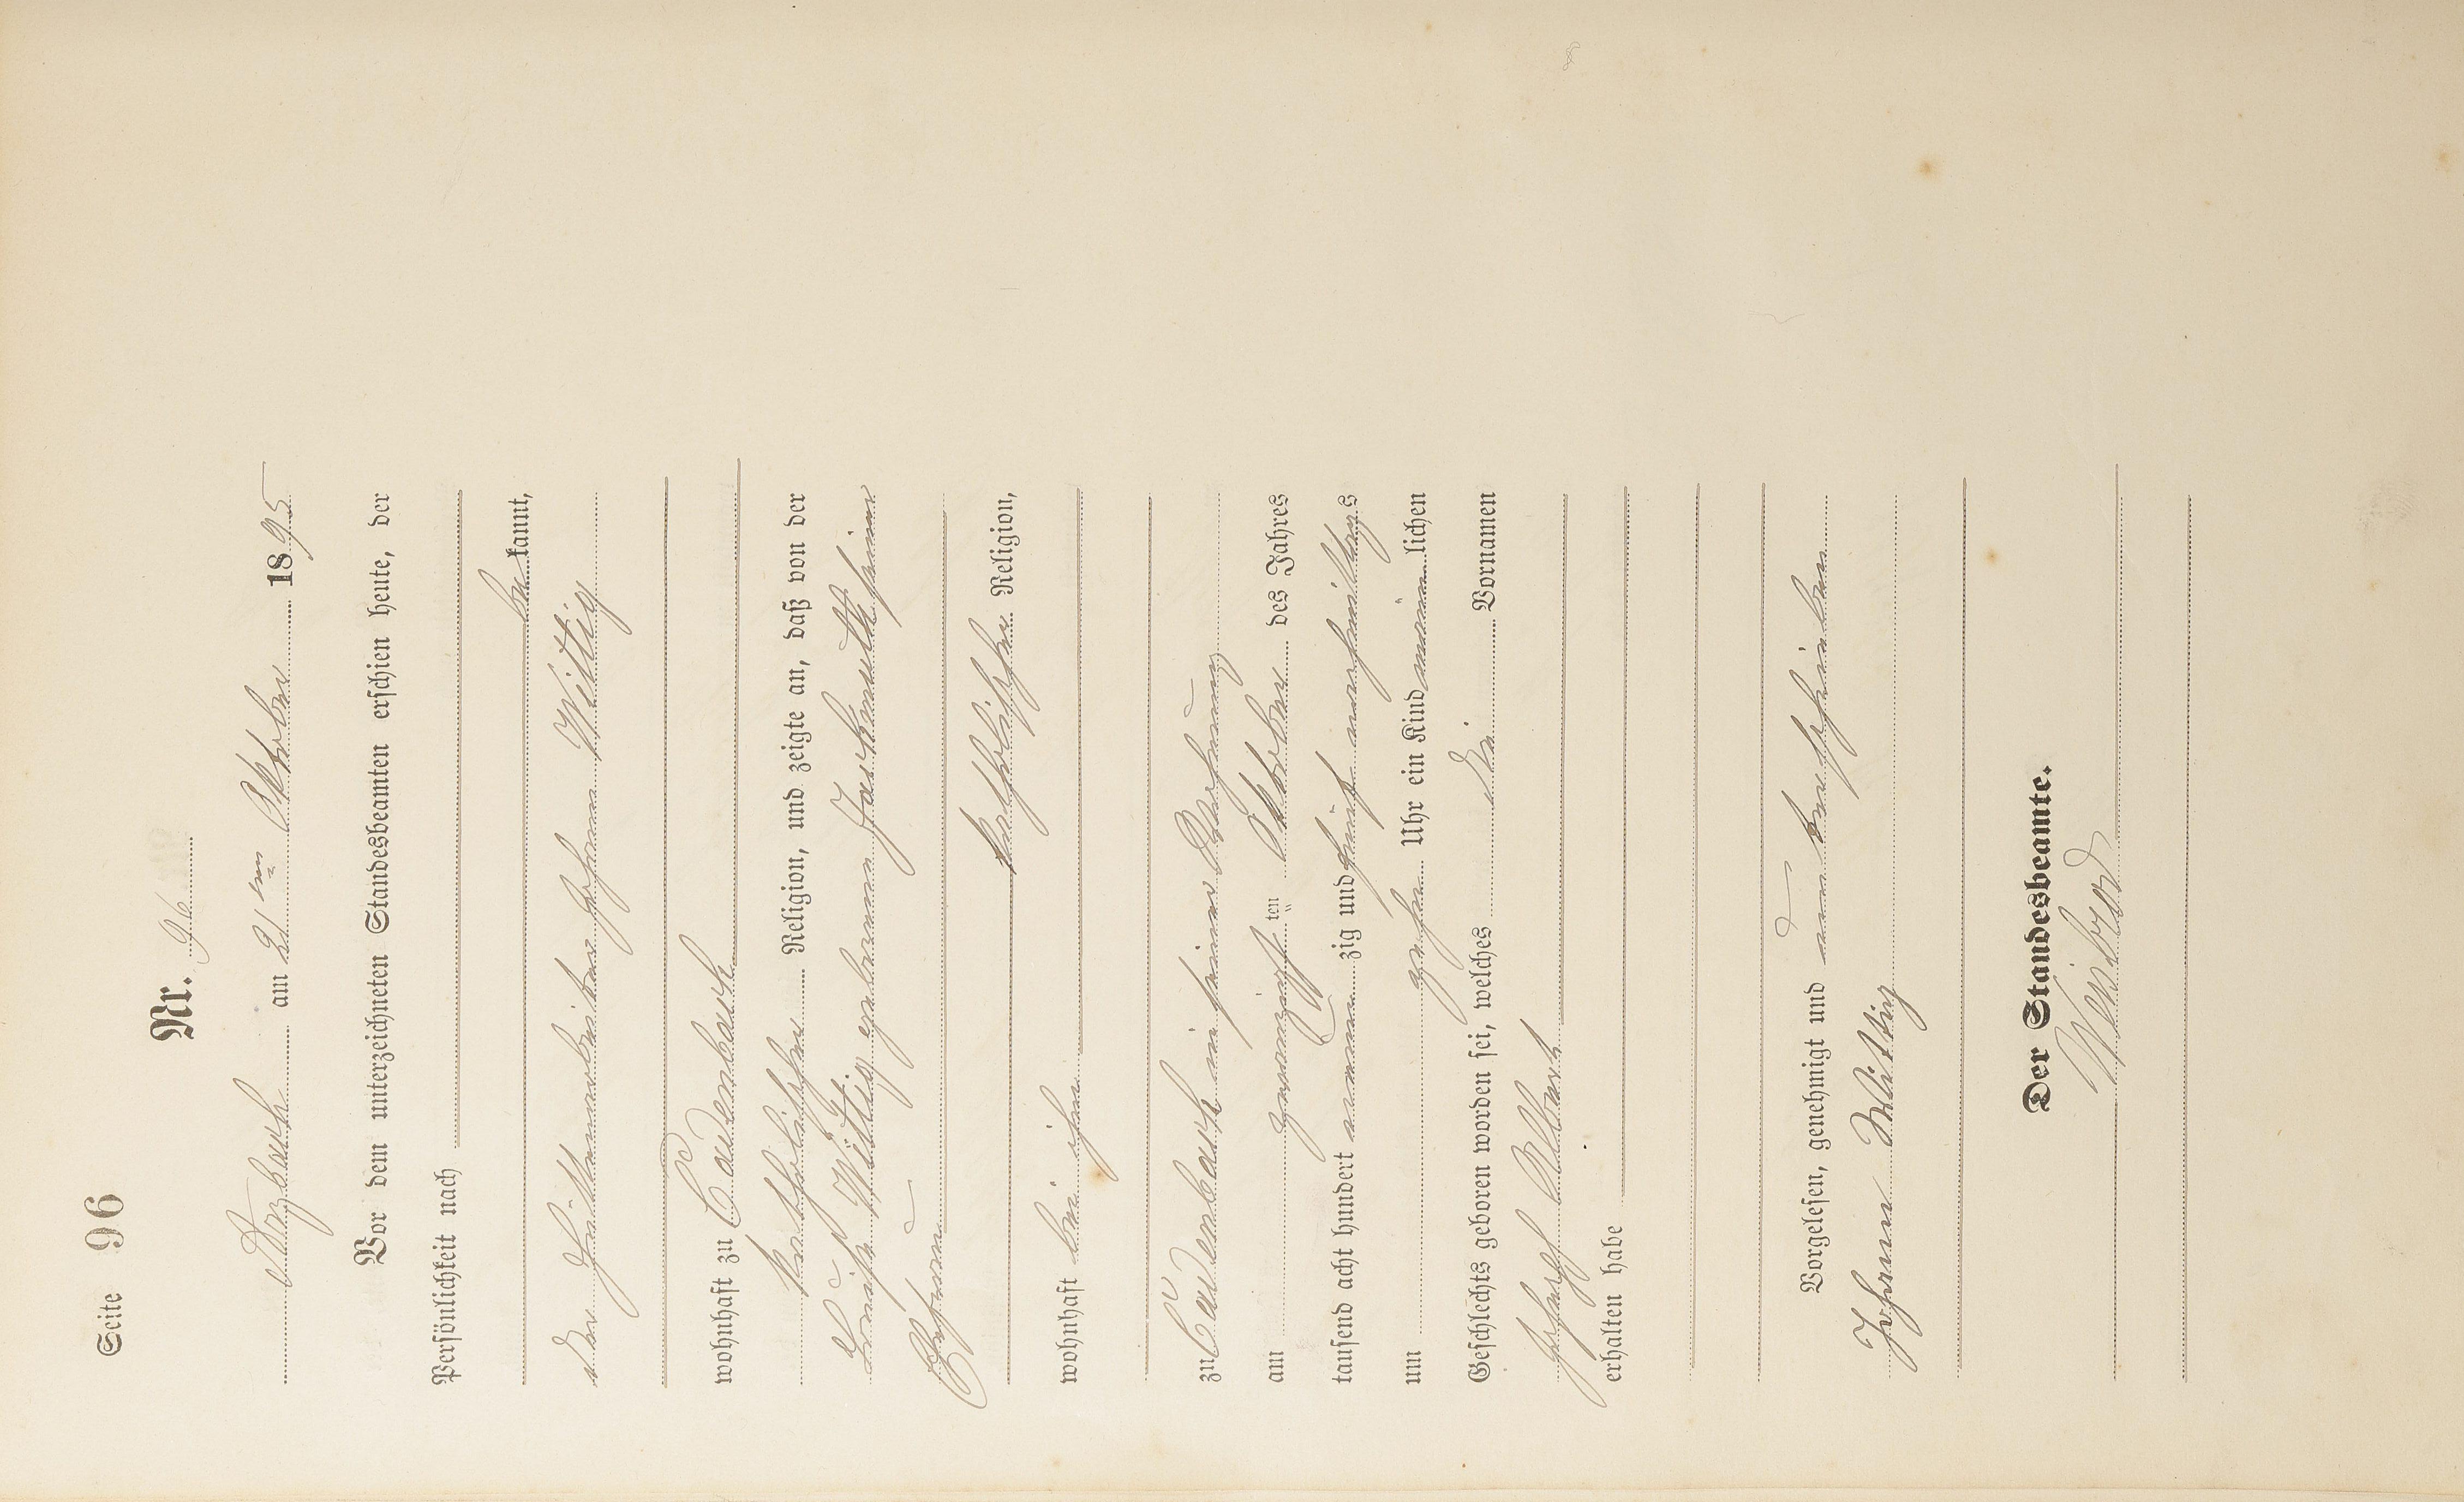 Seite 96
Nr. 96
Atzbach am 21ten Oktober 1895
Vor dem unterzeichneten Standesbeamten erschien heute, der
Persönlichkeit nach
be kannt,
der Hüttenarbeiter Johann Wittig
wohnhaft zu
katholischer Religion, und zeigte an, daß von der
Louise Wittig geborenen seiner
Ehefrau
katholischer Religion,
wohnhaft bei ihm
zu in seiner Wohnung
am zwanzigsten Oktober des Jahres
tausend acht hundert neunzig und fünf nachmittags
um zehn Uhr ein Kind männlichen
Geschlechts geboren worden sei, welches die Vornamen
Joseph Albert
erhalten habe
Vorgelesen, genehmigt und unterschrieben
Johann Wittig
Der Standesbeamte.